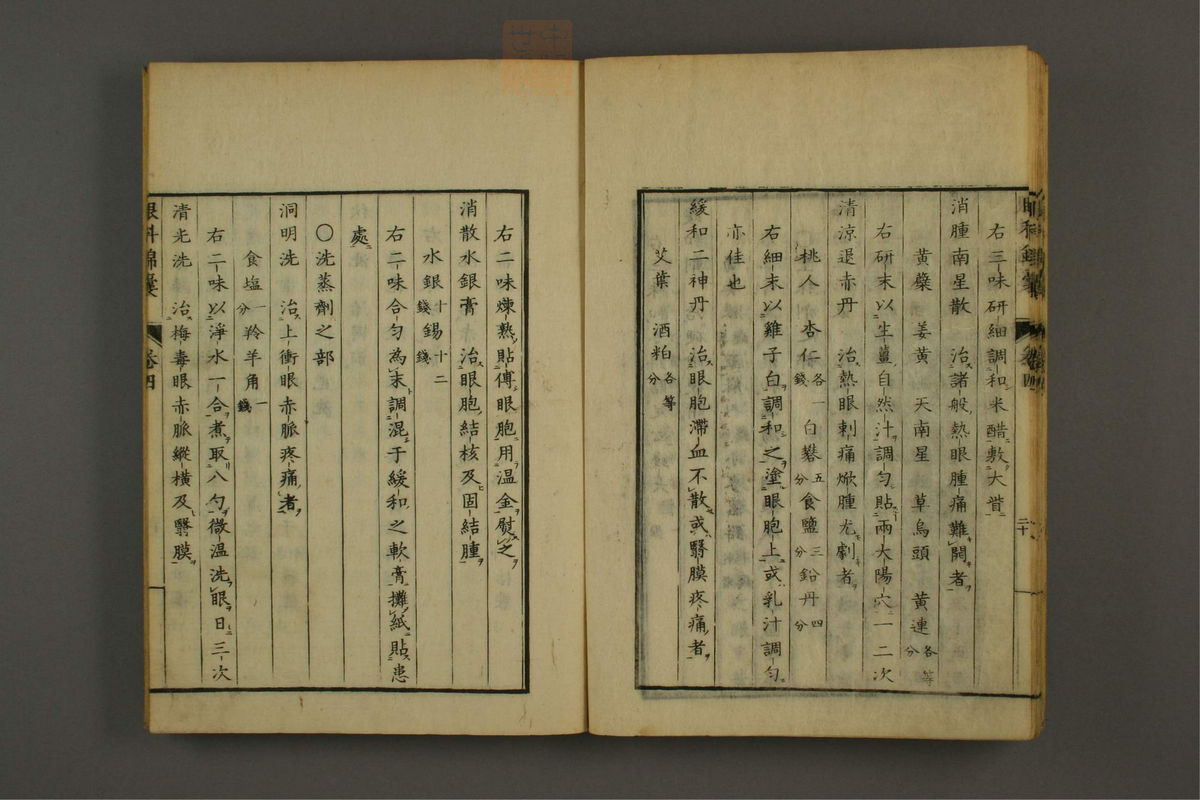 眼科錦囊 卷四 二十
右三味研細調和米醋敷大眥
消腫南星散 治諸般熱眼腫痛難開者
黃蘗 姜黃 天南星 草烏頭 黃連各等分
右研末以生薑自然汁調勻貼兩大陽穴一二次
清涼退赤丹 治熱眼刺痛焮腫尤劇者
桃人 杏仁各一錢 白礬五分 食鹽三分 鉛丹四分
右細末以雞子白調和之塗眼胞上或乳汁調勻
亦佳也
緩和二神丹 治眼胞滯血不散或翳膜疼痛者
艾葉 酒粕各等分
右二味煉熟貼傅眼胞用温金熨之
消散水銀膏 治眼胞結核及固結腫
水銀十錢 錫十二錢
右二味合勻為末調混于緩和之軟膏攤紙貼患
處
〇洗蒸劑之部
洞明洗 治上衝眼赤脈疼痛者
食塩一分 羚羊角一錢
右二味以淨水一合煮取八勺微温洗眼日三次
清光洗 治梅毒眼赤脈縱橫及翳膜
眼科錦囊 卷四